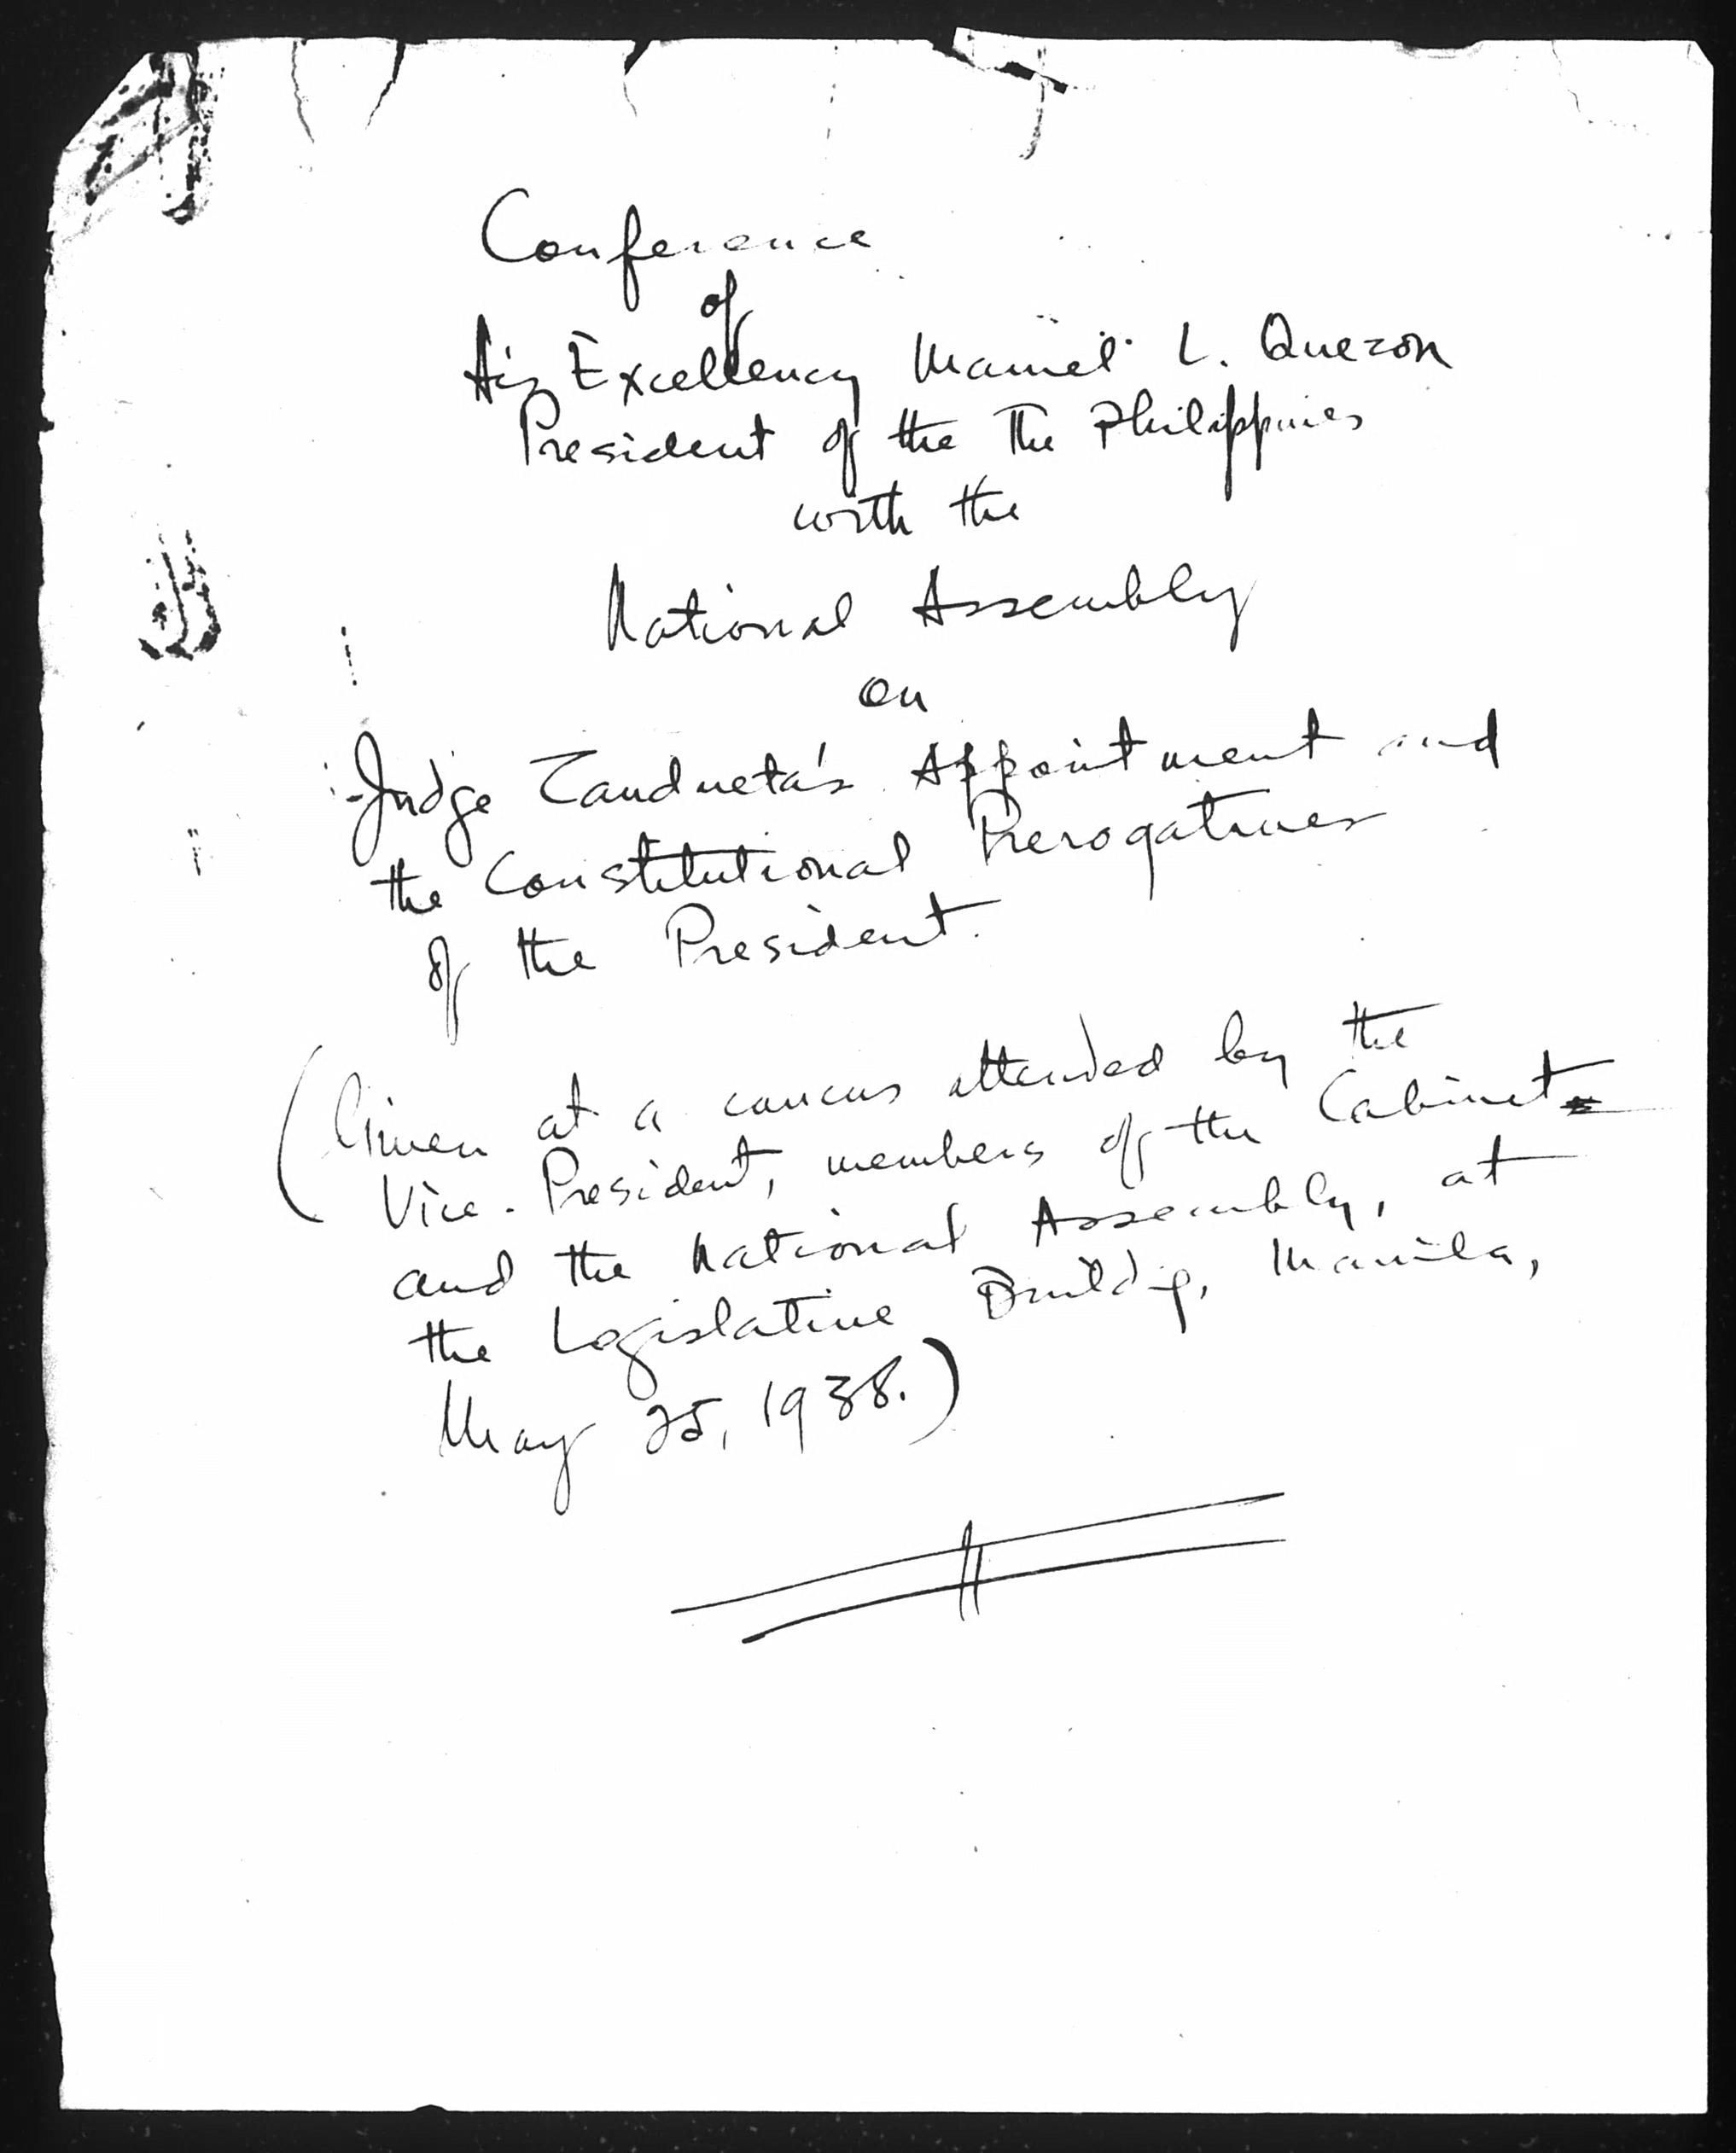 Conference
of
His Excellency Manuel L. Quezon
President of the The Philippines
with the
National Assembly
on
Judge Zandueta's Appointment and
the Constitutional Prerogatives
of the President.
(Given at a caucus attended by the
Vice-President, members of the Cabinet
and the National Assembly, at
the Legislative Building, Manila,
May 25, 1938.)